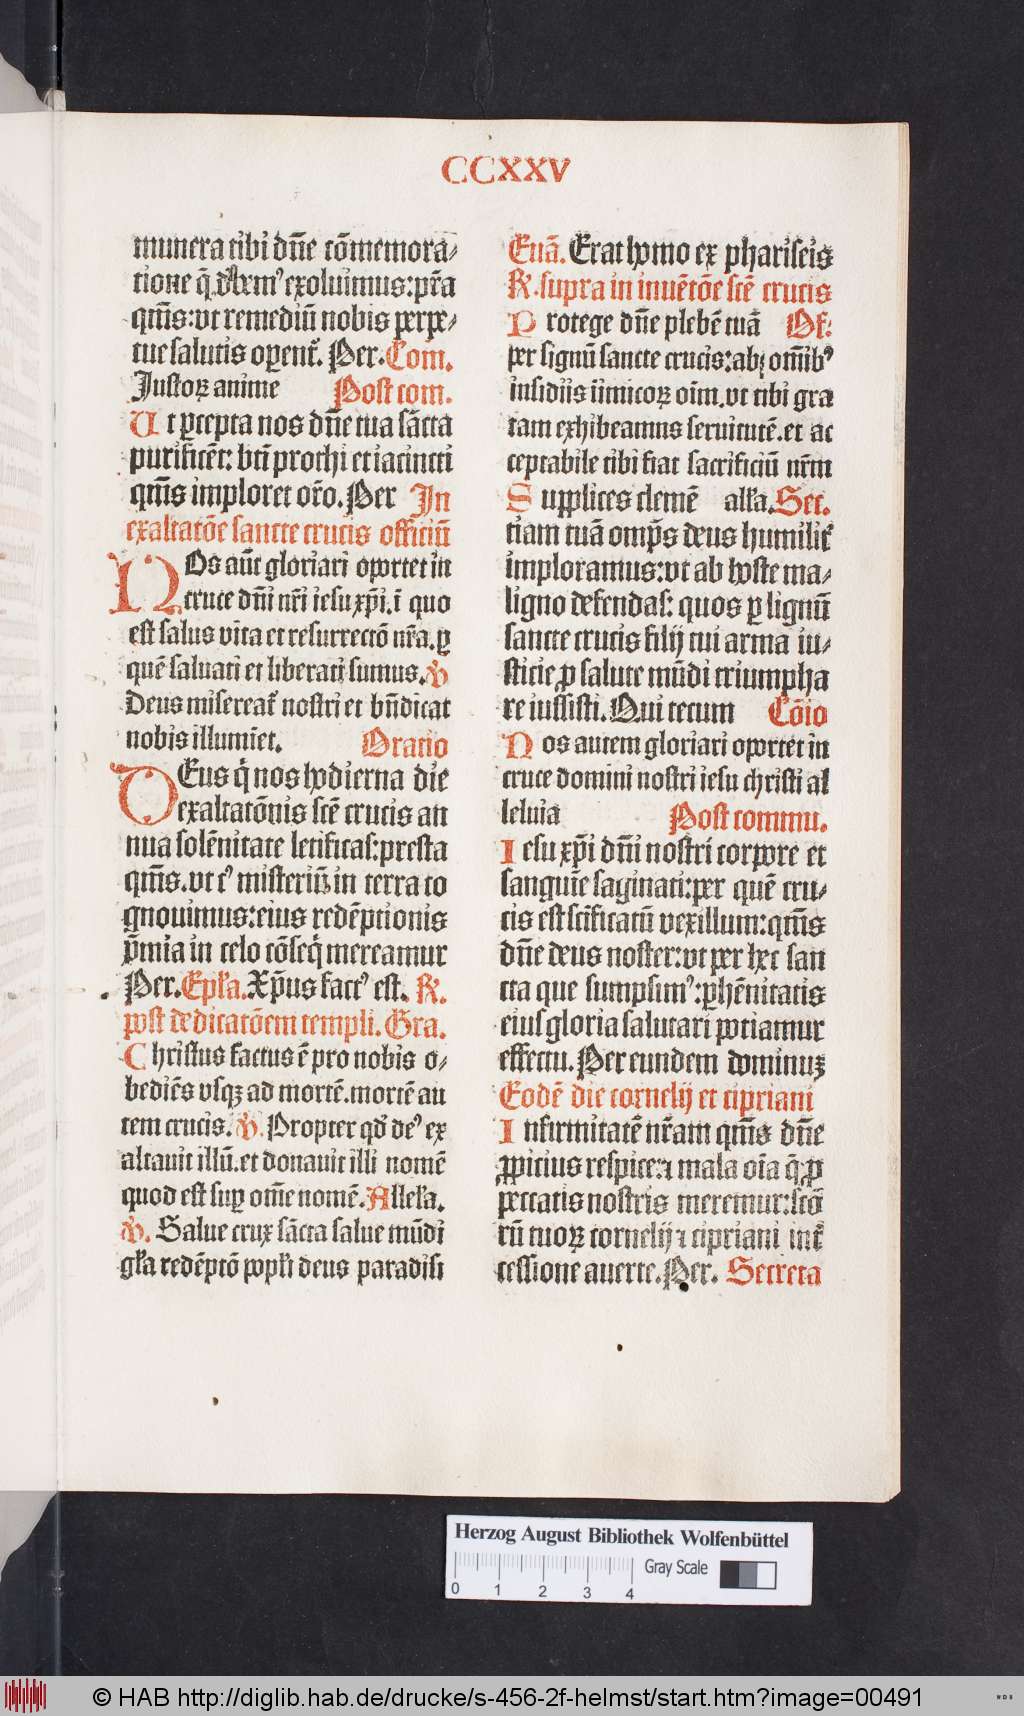 CCXXV
munera tibi dn̄e cōmemora⸗
tione q̄ debem⁹ exoluimus: pr̄a
qm̄s: vt remediū nobis perpe⸗
tue salutis oꝑent᷑. Per. Com.
Justoꝝ anime Post com.
Ut ꝑcepta nos dn̄e tua sācta
purificēt: bt̄i prothi et iacincti
qm̄s imploret or̄o. Per In
exaltatōe sancte crucis officiū
NOs aūt gloriari oportet in
cruce dn̄i nr̄i iesu xp̄i. ī quo
est salus vita et resurrectō nr̄a. ꝑ
quē saluati et liberati sumus. ℣
Deus misereat᷑ nostri et bn̄dicat
nobis illumiēt. Oratio
DEus q̄ nos hodierna die
exaltatōnis scē crucis an
nua solēnitate letificas: presta
qm̄s. vt c⁹ misteriū in terra co
gnouimus: eius redēptionis
p̄mia in celo cōseq̄ mereamur
Per. Epl̄a. Xp̄us fact⁹ est. R̄.
post dedicatōem templi. Gra.
Christus factus ē pro nobis o⸗
bediēs vsqꝫ ad mortē. mortē au
tem crucis. ℣. Propter qd̄ de⁹ ex
altauit illū. et donauit illi nomē
quod est suꝑ om̄e nomē. Allel̄a.
℣. Salue crux sācta salue mūdi
gl̄a redēptō popl̄i deus paradisi
Euā. Erat homo ex phariseis
R̄. supra in inuētōe scē crucis
Protege dn̄e plebē tuā Of:
per signū sancte crucis: abꝫ om̄ib⁹
insidiis iīmicoꝝ oīm. vt tibi gra
tam exhibeamus seruitutē. et ac
ceptabile tibi fiat sacrificiū nr̄m
Supplices clemē all̄a. Sec.
tiam tuā omp̄s deus humilit᷑
imploramus: vt ab hoste ma⸗
ligno defendas: quos ꝑ lignū
sancte crucis filij tui arma iu⸗
sticie ꝓ salute mūdi triumpha
re iussisti. Qui tecum Cōio
Nos autem gloriari oportet in
cruce domini nostri iesu christi al
leluia Post commu.
Iesu xp̄i dn̄i nostri corpore et
sanguīe saginati: per quē cru⸗
cis est scīficatū vexillum: qm̄s
dn̄e deus noster: vt per hec san
cta que sumpsim⁹: ꝑhēnitatis
eius gloria salutari potiamur
effectu. Per eundem dominuꝫ
Eodē die cornelij et cipriani
Infirmitatē nr̄am qm̄s dn̄e
ꝓpicius respice: ⁊ mala oīa q̄ ꝓ
peccatis nostris meremur: scō
rū tuoꝝ cornelij ⁊ cipriani int᷑
cessione auerte. Per. Secreta
Herzog August Bibliothek Wolfenbüttel
Gray Scale
0 1 2 3 4
© HAB http://diglib.hab.de/drucke/s-456-2f-helmst/start.htm?image=00491